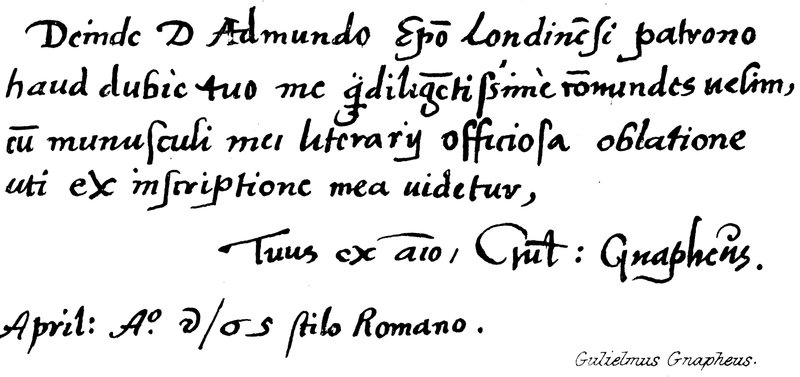 Deinde D Ædmundo Epō Londinēsi patrono
haud dubie tuo me q̄diligētissime cōmundes uelim,
cū munusculi mei literarij officiosa oblatione
uti ex inscriptione mea uidetur,
Tuus ex aīo, Guil: Gnapheus.
April: Aº stilo Romano.
Gulielmus Gnapheus.